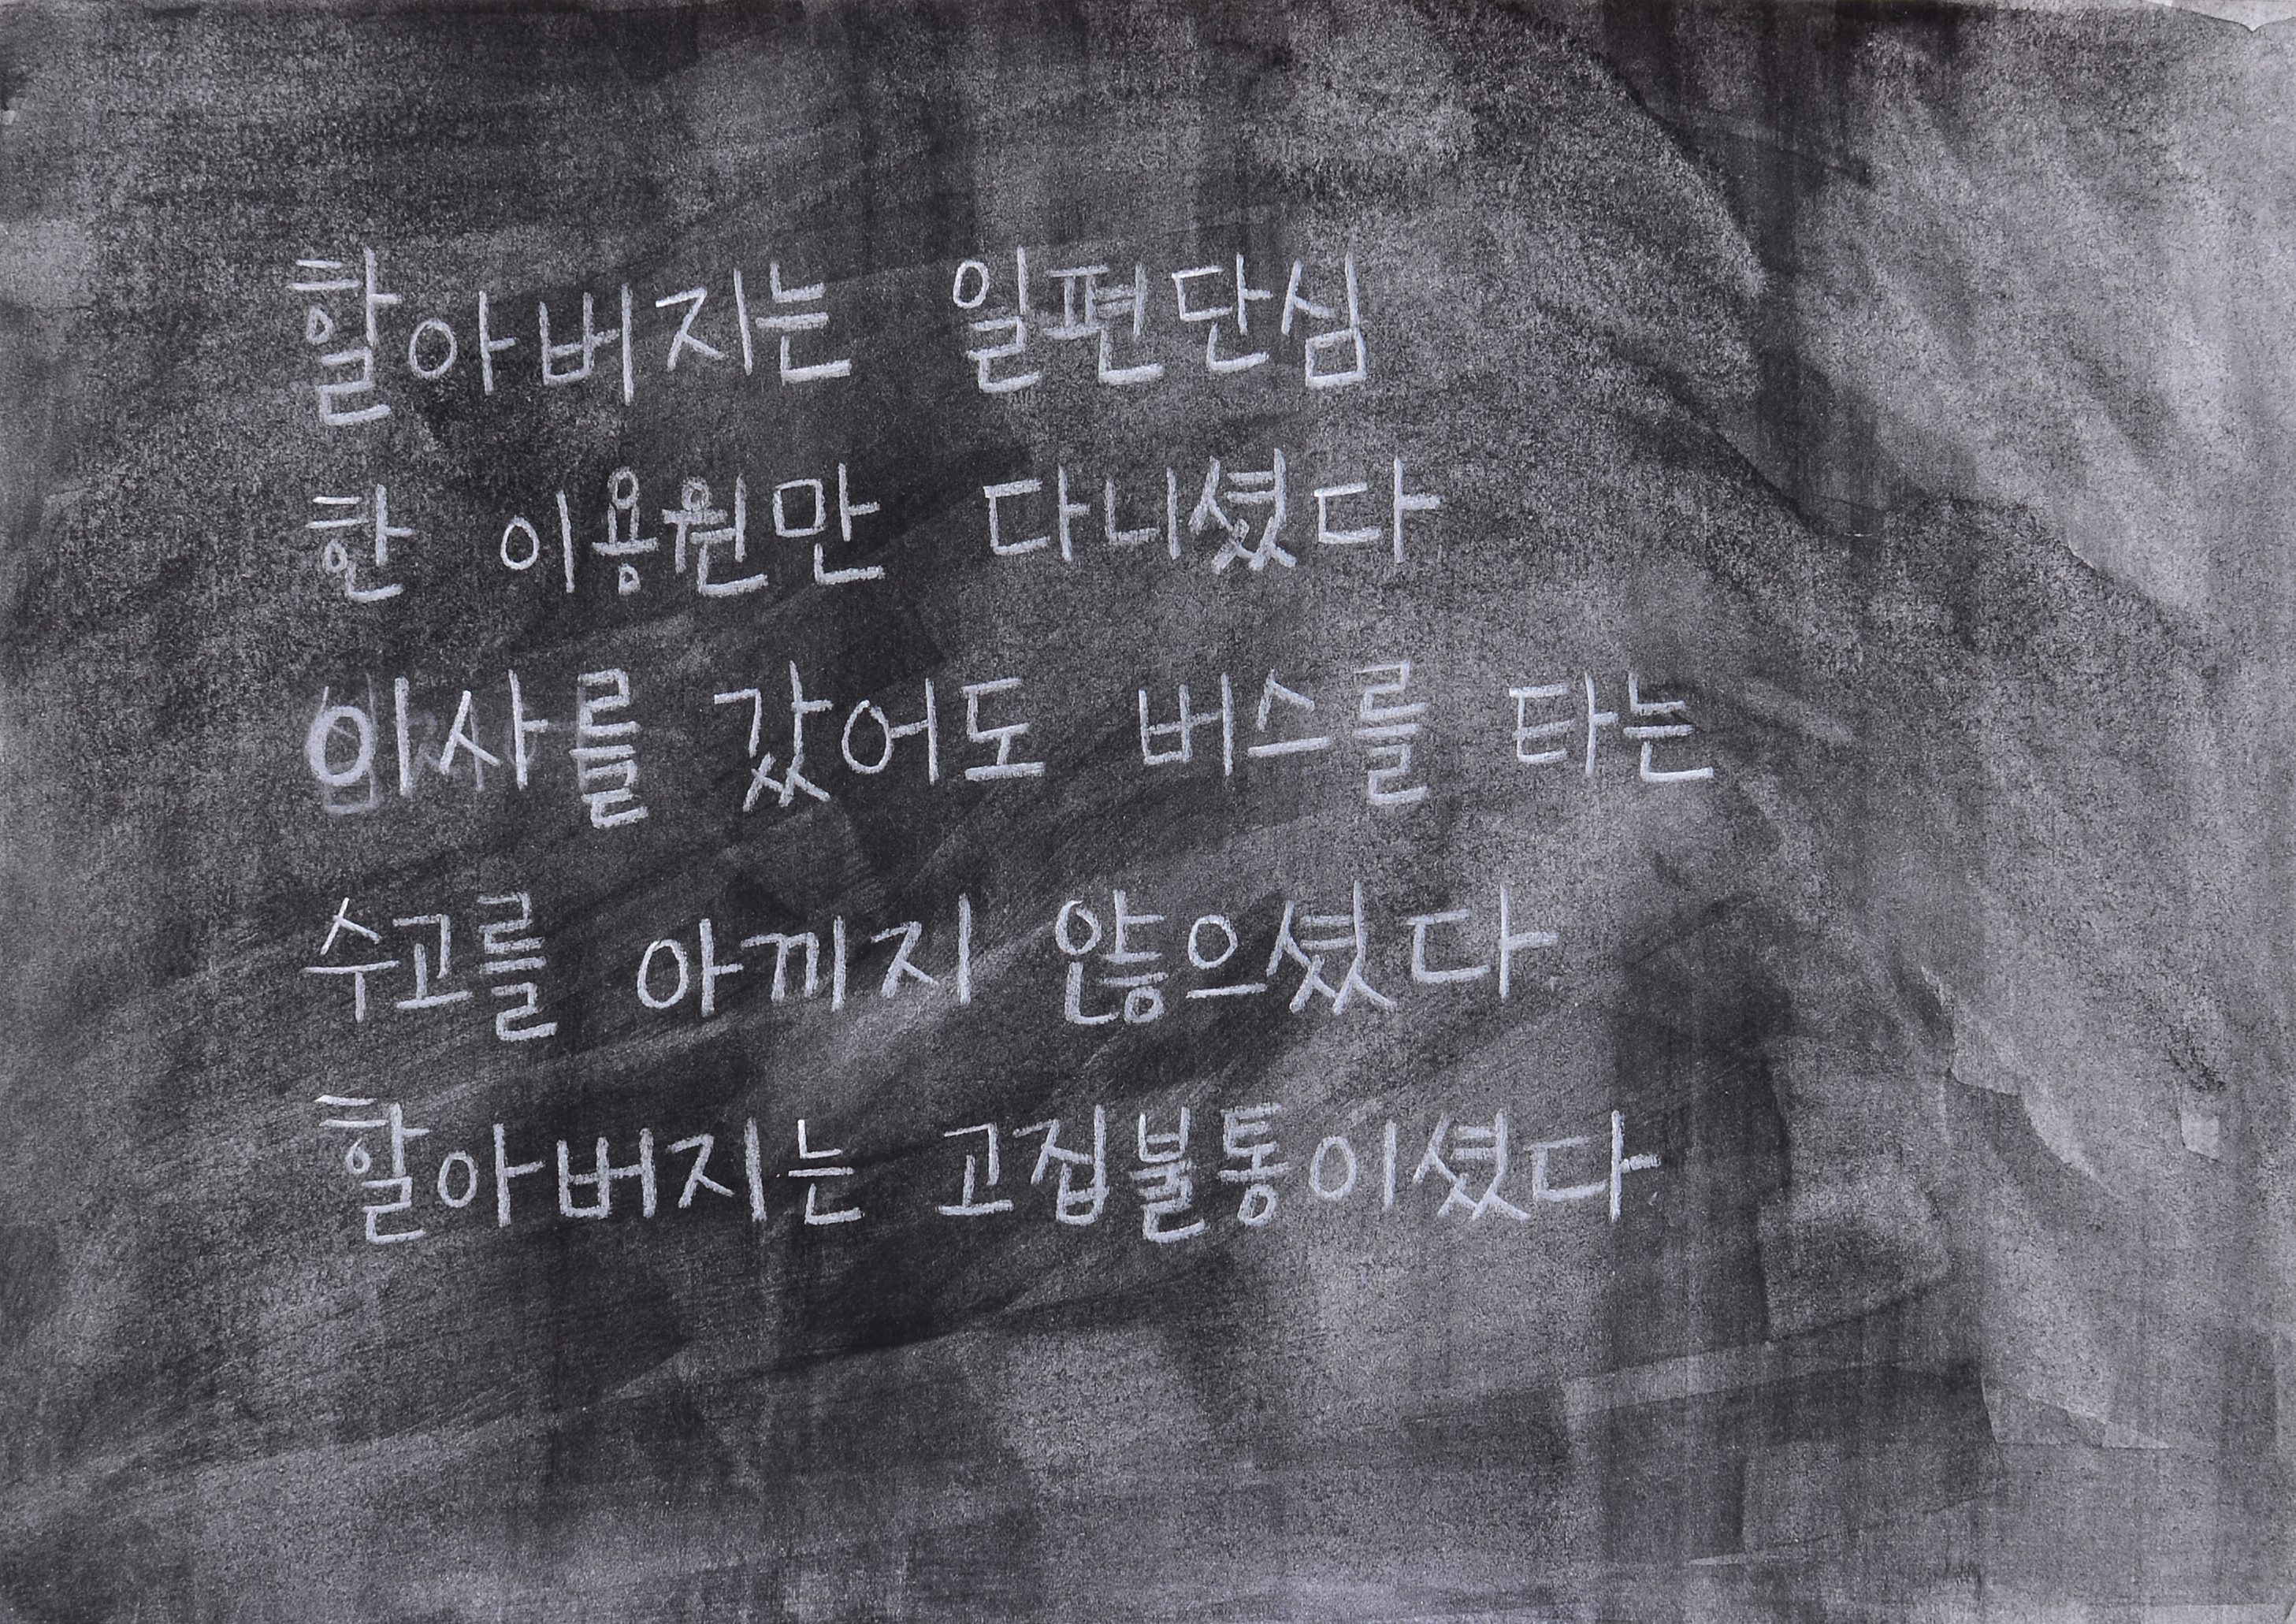 할아버지는 일편단심
한 이용원만 다니셨다
이사를 갔어도 버스를 타는
수고를 아끼지 않으셨다
할아버지는 고집불통이셨다